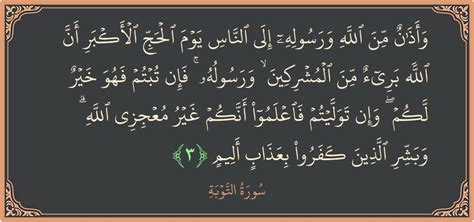 وَأَذَٰنٌ مِّنَ ٱللَّهِ وَرَسُولِهِۦٓ إِلَى ٱلنَّاسِ يَوْمَ ٱلْحَجِّ ٱلْأَكْبَرِ أَنَّ
ٱللَّهَ بَرِىٓءٌ مِّنَ ٱلْمُشْرِكِينَ ۙ وَرَسُولُهُۥ ۚ فَإِن تُبْتُمْ فَهُوَ خَيْرٌ
لَّكُمْ ۖ وَإِن تَوَلَّيْتُمْ فَٱعْلَمُوٓا۟ أَنَّكُمْ غَيْرُ مُعْجِزِى ٱللَّهِ ۗ
وَبَشِّرِ ٱلَّذِينَ كَفَرُوا۟ بِعَذَابٍ أَلِيمٍ ﴿٣﴾
سورة التوبة